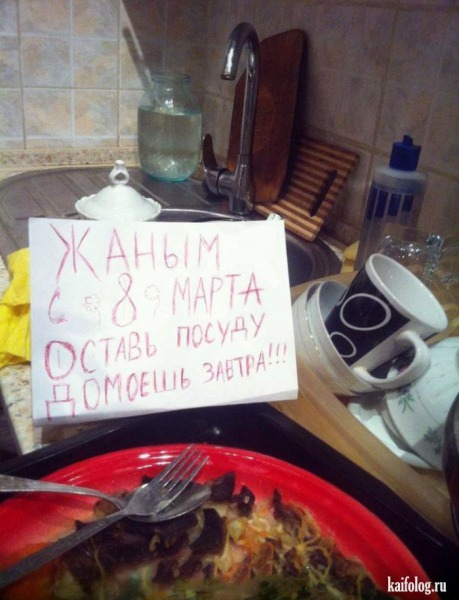 ЖАНЫМ
С 8 МАРТА
ОСТАВЬ ПОСУДУ
ДОМОЕШЬ ЗАВТРА!!!
kaifolog.ru